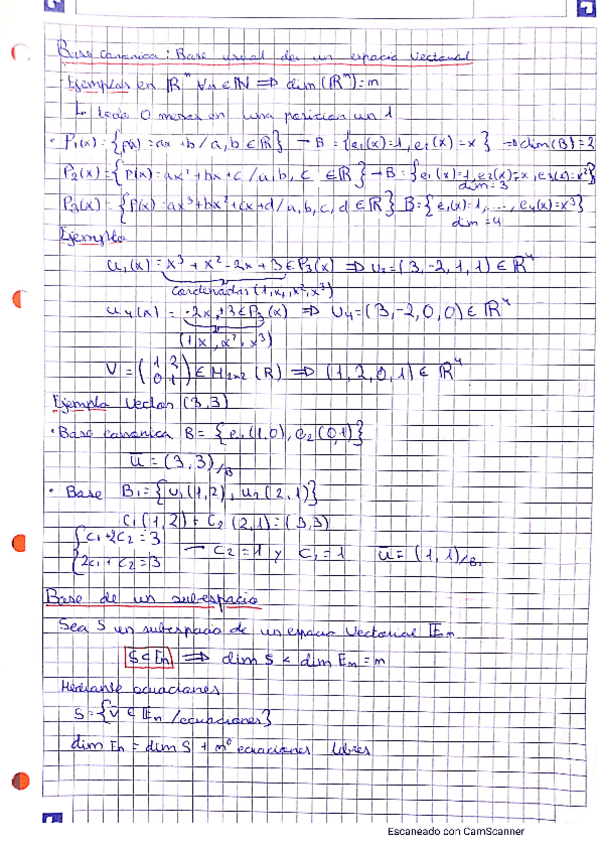 Base canónica: Base usual de un espacio vectorial
Ejemplos en ℝⁿ ∀n∈ℕ ⇒ dim(ℝⁿ)=n
↳ todo 0 menos en una posición un 1
· P₁(x)={p(x)=ax+b/a,b∈ℝ} → B={e₁(x)=1,e₂(x)=x} ⇒ dim(B)=2
P₂(x)={P(x)=ax²+bx+c/a,b,c∈ℝ} → B={e₁(x)=1,e₂(x)=x,e₃(x)=x²}
dim=3
P₃(x)={P(x)=ax³+bx²+cx+d/a,b,c,d∈ℝ} B={e₁(x)=1,...,e₄(x)=x³}
dim=4
Ejemplo
u₁(x)=x³+x²-2x+3∈P₃(x) ⇒ u₁=(3,-2,1,1)∈ℝ⁴
coordenadas (1,x,x²,x³)
u₄(x)=-2x+3∈P₃(x) ⇒ u₄=(3,-2,0,0)∈ℝ⁴
(1,x,x²,x³)
V=(1 2
0 1)∈M₂ₓ₂(ℝ) ⇒ (1,2,0,1)∈ℝ⁴
Ejemplo Vector (3,3)
· Base canónica B={e₁(1,0),e₂(0,1)}
u=(3,3)/B
· Base B₁={u₁(1,2),u₂(2,1)}
C₁(1,2)+C₂(2,1)=(3,3)
{C₁+2C₂=3
2C₁+C₂=3 → C₂=1 y C₁=1 u=(1,1)/B₁
Base de un subespacio
Sea S un subespacio de un espacio vectorial En
S⊂En ⇒ dim S < dim En=n
Mediante ecuaciones
S={v∈En/ecuaciones}
dim En = dim S + nº ecuaciones libres
Escaneado con CamScanner